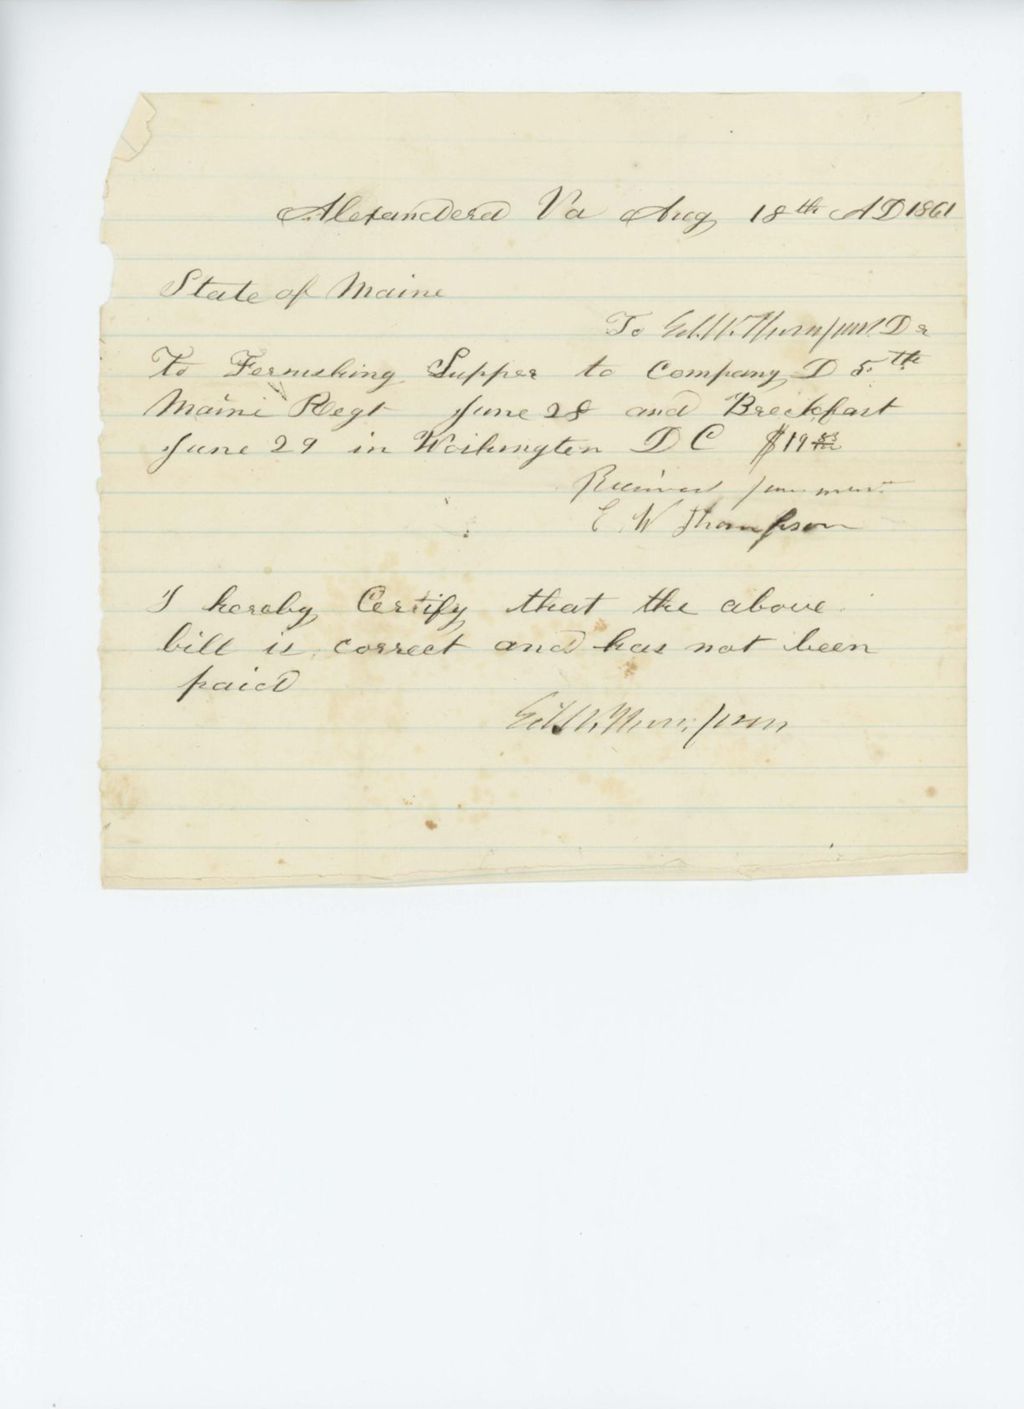 Alexandera Va Aug 18th AD 1861
State of Maine
To Ed. W. Thompson Dr
To Fernishing Supper to Company D 5th
Maine Regt June 28 and Breckfast
June 29 in Washington D C $19
Received payment
E W Thompson
I hereby Certify that the above
bill is correct and has not been
paid
Ed W. Thompson